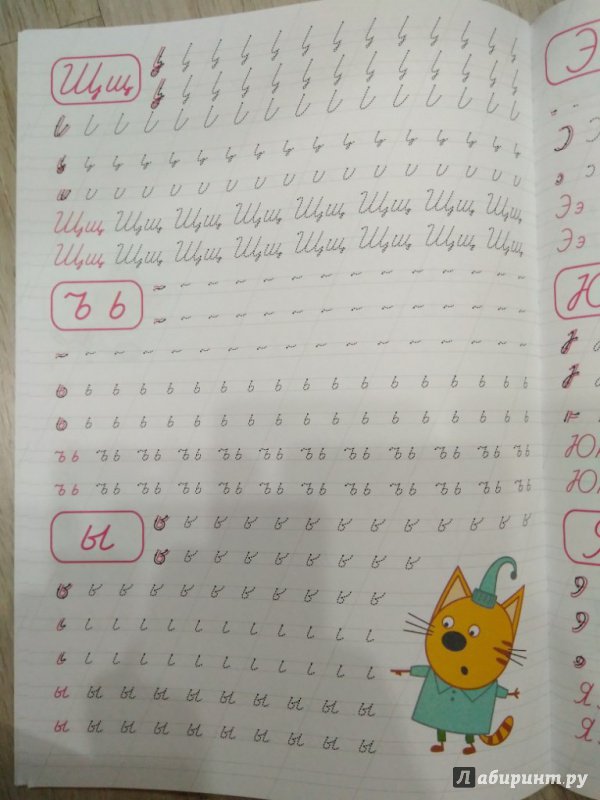 Щщ
Щщ Щщ Щщ Щщ Щщ Щщ Щщ Щщ
Щщ Щщ Щщ Щщ Щщ Щщ Щщ Щщ
Ъ ь
ь ь ь ь ь ь ь ь ь ь ь ь ь ь ь ь ь ь
ь ь ь ь ь ь ь ь ь ь ь ь ь ь ь ь ь ь
Ъь Ъь Ъь Ъь Ъь Ъь Ъь Ъь Ъь Ъь Ъь Ъь
Ъь Ъь Ъь Ъь Ъь Ъь Ъь Ъь Ъь Ъь Ъь Ъь
ы
ы ы ы ы ы ы ы ы ы ы
ы ы ы ы ы ы ы ы ы ы
Э
Ээ
Ээ
Ю
Ю
Ю
Я
Я
Лабиринт.ру